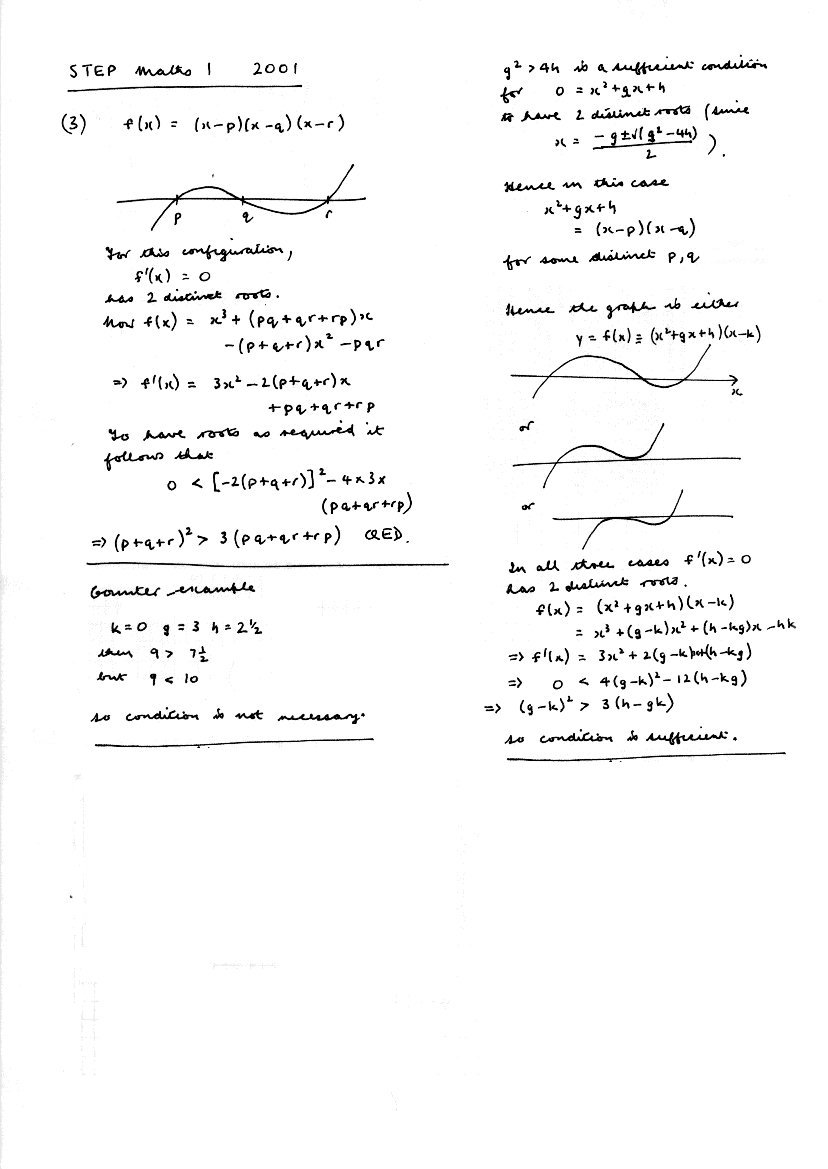 STEP Maths 1 2001
(3) f(x) = (x-p)(x-q)(x-r)
p q r
For this configuration,
f'(x) = 0
has 2 distinct roots.
Now f(x) = x³ + (pq+qr+rp)x
-(p+q+r)x² - pqr
=> f'(x) = 3x² - 2(p+q+r)x
+pq+qr+rp
To have roots as required it
follows that
0 < [-2(p+q+r)]² - 4×3×
(pq+qr+rp)
=> (p+q+r)² > 3(pq+qr+rp) QED.
Counter-example
k=0 g=3 h=2½
then 9 > 7½
but 9 < 10
so condition is not necessary.
g² > 4h is a sufficient condition
for 0 = x²+gx+h
to have 2 distinct roots (since
x = (-g±√(g²-4h))/2 ).
Hence in this case
x²+gx+h
= (x-p)(x-q)
for some distinct p,q
Hence the graph is either
y = f(x) ≡ (x²+gx+h)(x-k)
x
or
or
In all three cases f'(x)=0
has 2 distinct roots.
f(x) = (x²+gx+h)(x-k)
= x³+(g-k)x²+(h-kg)x-hk
=> f'(x) = 3x²+2(g-k)x+(h-kg)
=> 0 < 4(g-k)²-12(h-kg)
=> (g-k)² > 3(h-gk)
so condition is sufficient.